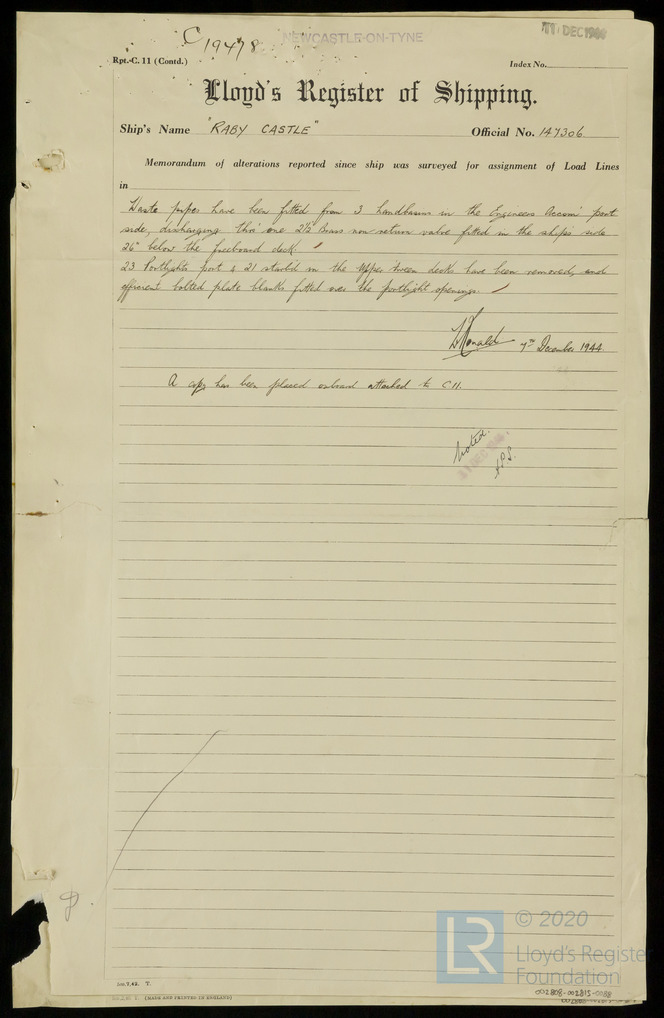 C 19478
NEWCASTLE-ON-TYNE
DEC 1944
Rpt.-C. 11 (Contd.)
Index No.
Lloyd's Register of Shipping.
Ship's Name "RABY CASTLE" Official No. 147306
Memorandum of alterations reported since ship was surveyed for assignment of Load Lines
in
Waste pipes have been fitted from 3 handbasins in the Engineers Accom port
side, discharging thro' one 2½ Brass non-return valve fitted in the ship's side
26" below the freeboard deck.
23 Portlights port & 21 starb'd in the upper tween decks have been removed, and
efficient bolted plate blanks fitted over the portlight openings.
7th December 1944.
A copy has been placed onboard attached to C11.
Noted.
DEC
5m.7,42. T.
(MADE AND PRINTED IN ENGLAND)
LR © 2020
Lloyd's Register
Foundation
002809-002815-0088